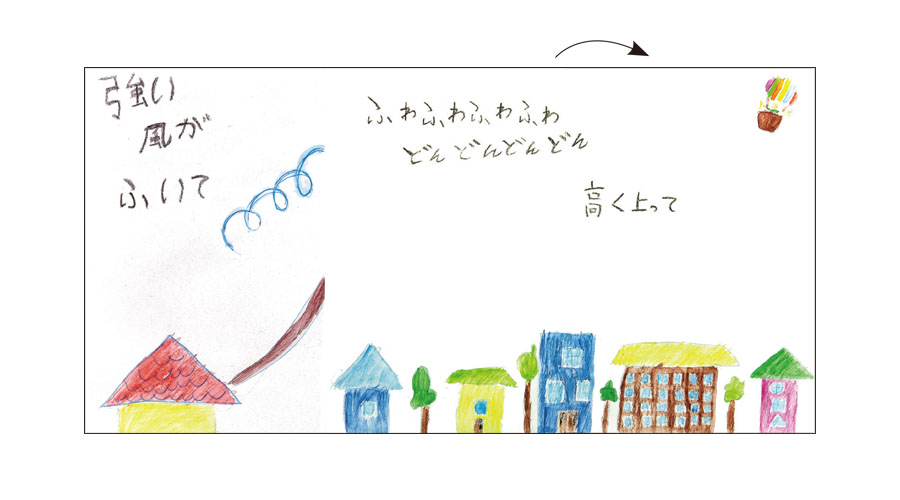 強い
風が
ふいて
ふわふわふわふわ
どんどんどんどん
高く上って